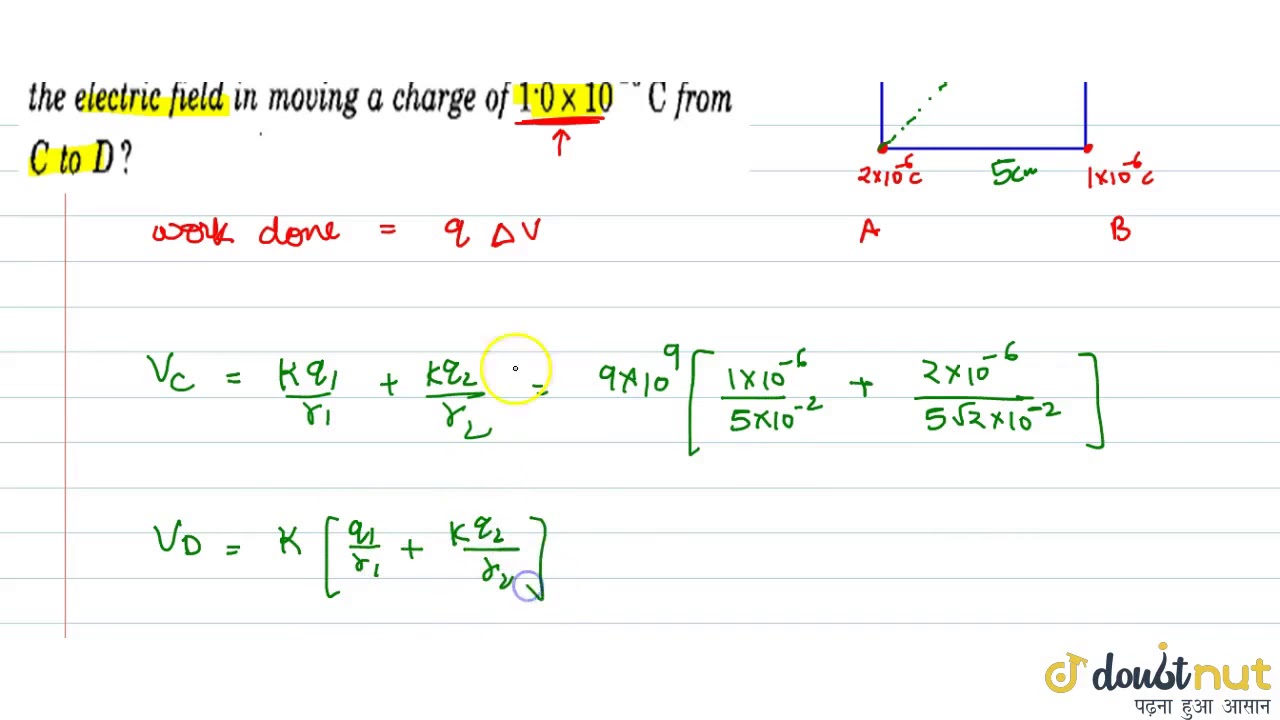 the electric field in moving a charge of 1·0 × 10 C from
C to D ?
2×10⁻⁶C 5cm 1×10⁻⁶C
A B
work done = q ΔV
V_C = Kq₁/r₁ + Kq₂/r₂ = 9×10⁹ [ 1×10⁻⁶/5×10⁻² + 2×10⁻⁶/5√2×10⁻² ]
V_D = K [ q₁/r₁ + Kq₂/r₂ ]
doubtnut
पढ़ना हुआ आसान